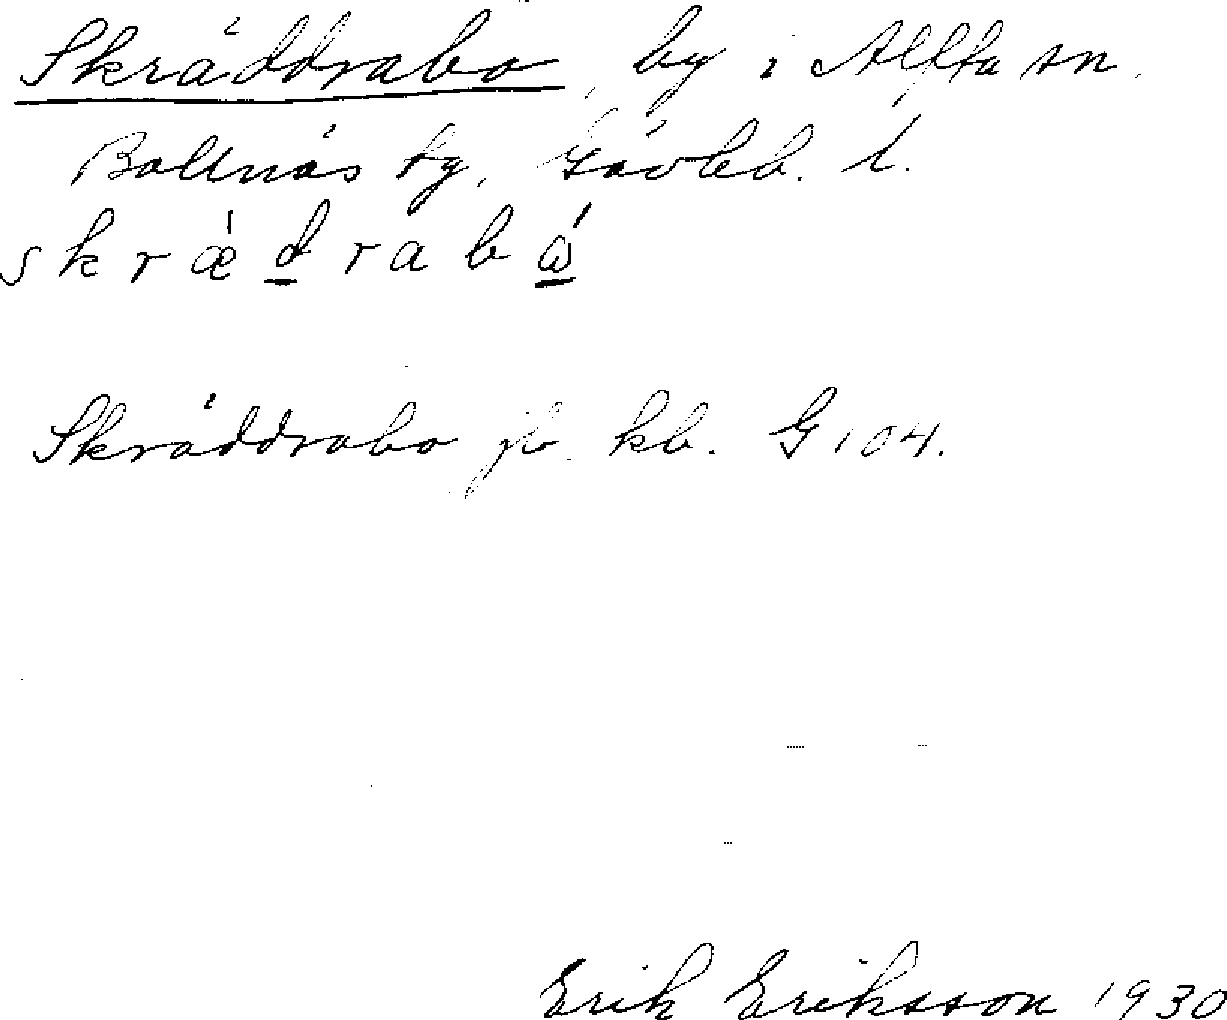 Skräddrabo, by i Alfta sn.
Bollnäs tg, Gävleb. l.
skrǽdrabǻ
Skräddrabo jb. kb. G 104.
Erik Eriksson 1930